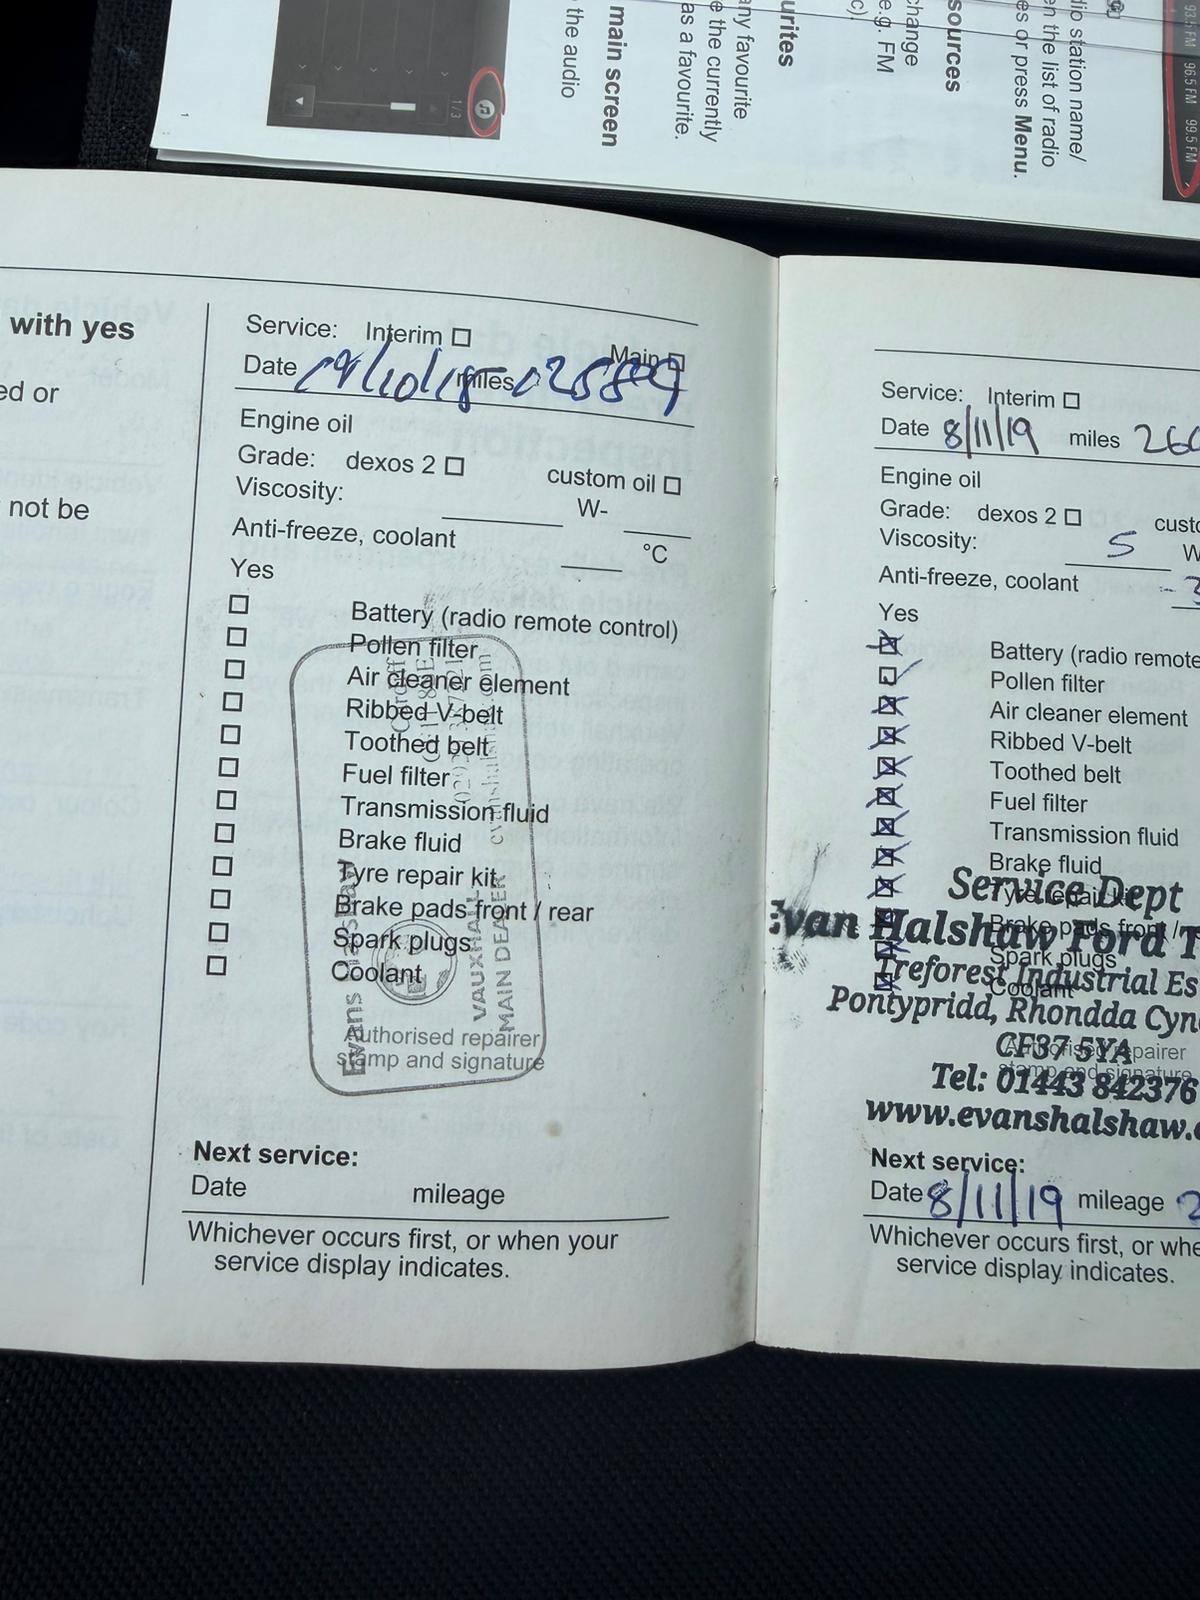 dio station name/
en the list of radio
es or press Menu.
sources
change
e.g. FM
c).
urites
any favourite
e the currently
as a favourite.
main screen
the audio
1/3
96.5 FM 99.5 FM
with yes
ed or
not be
Service: Interim
Main
Date miles
Engine oil
Grade: dexos 2 custom oil
Viscosity: W-
Anti-freeze, coolant °C
Yes
Battery (radio remote control)
Pollen filter
Air cleaner element
Ribbed V-belt
Toothed belt
Fuel filter
Transmission fluid
Brake fluid
Tyre repair kit
Brake pads front / rear
Spark plugs
Coolant
Authorised repairer
stamp and signature
Evans Halshaw
VAUXHALL
MAIN DEALER
Cardiff
Next service:
Date mileage
Whichever occurs first, or when your
service display indicates.
Service: Interim
Date 8/11/19 miles 260
Engine oil
Grade: dexos 2 custo
Viscosity: 5 W
Anti-freeze, coolant -3
Yes
Battery (radio remote
Pollen filter
Air cleaner element
Ribbed V-belt
Toothed belt
Fuel filter
Transmission fluid
Brake fluid
Tyre repair kit
Brake pads front /
Spark plugs
Coolant
Authorised repairer
stamp and signature
Service Dept
Evan Halshaw Ford T
Treforest Industrial Es
Pontypridd, Rhondda Cyn
CF37 5YA
Tel: 01443 842376
www.evanshalshaw.c
Next service:
Date 8/11/19 mileage 2
Whichever occurs first, or whe
service display indicates.